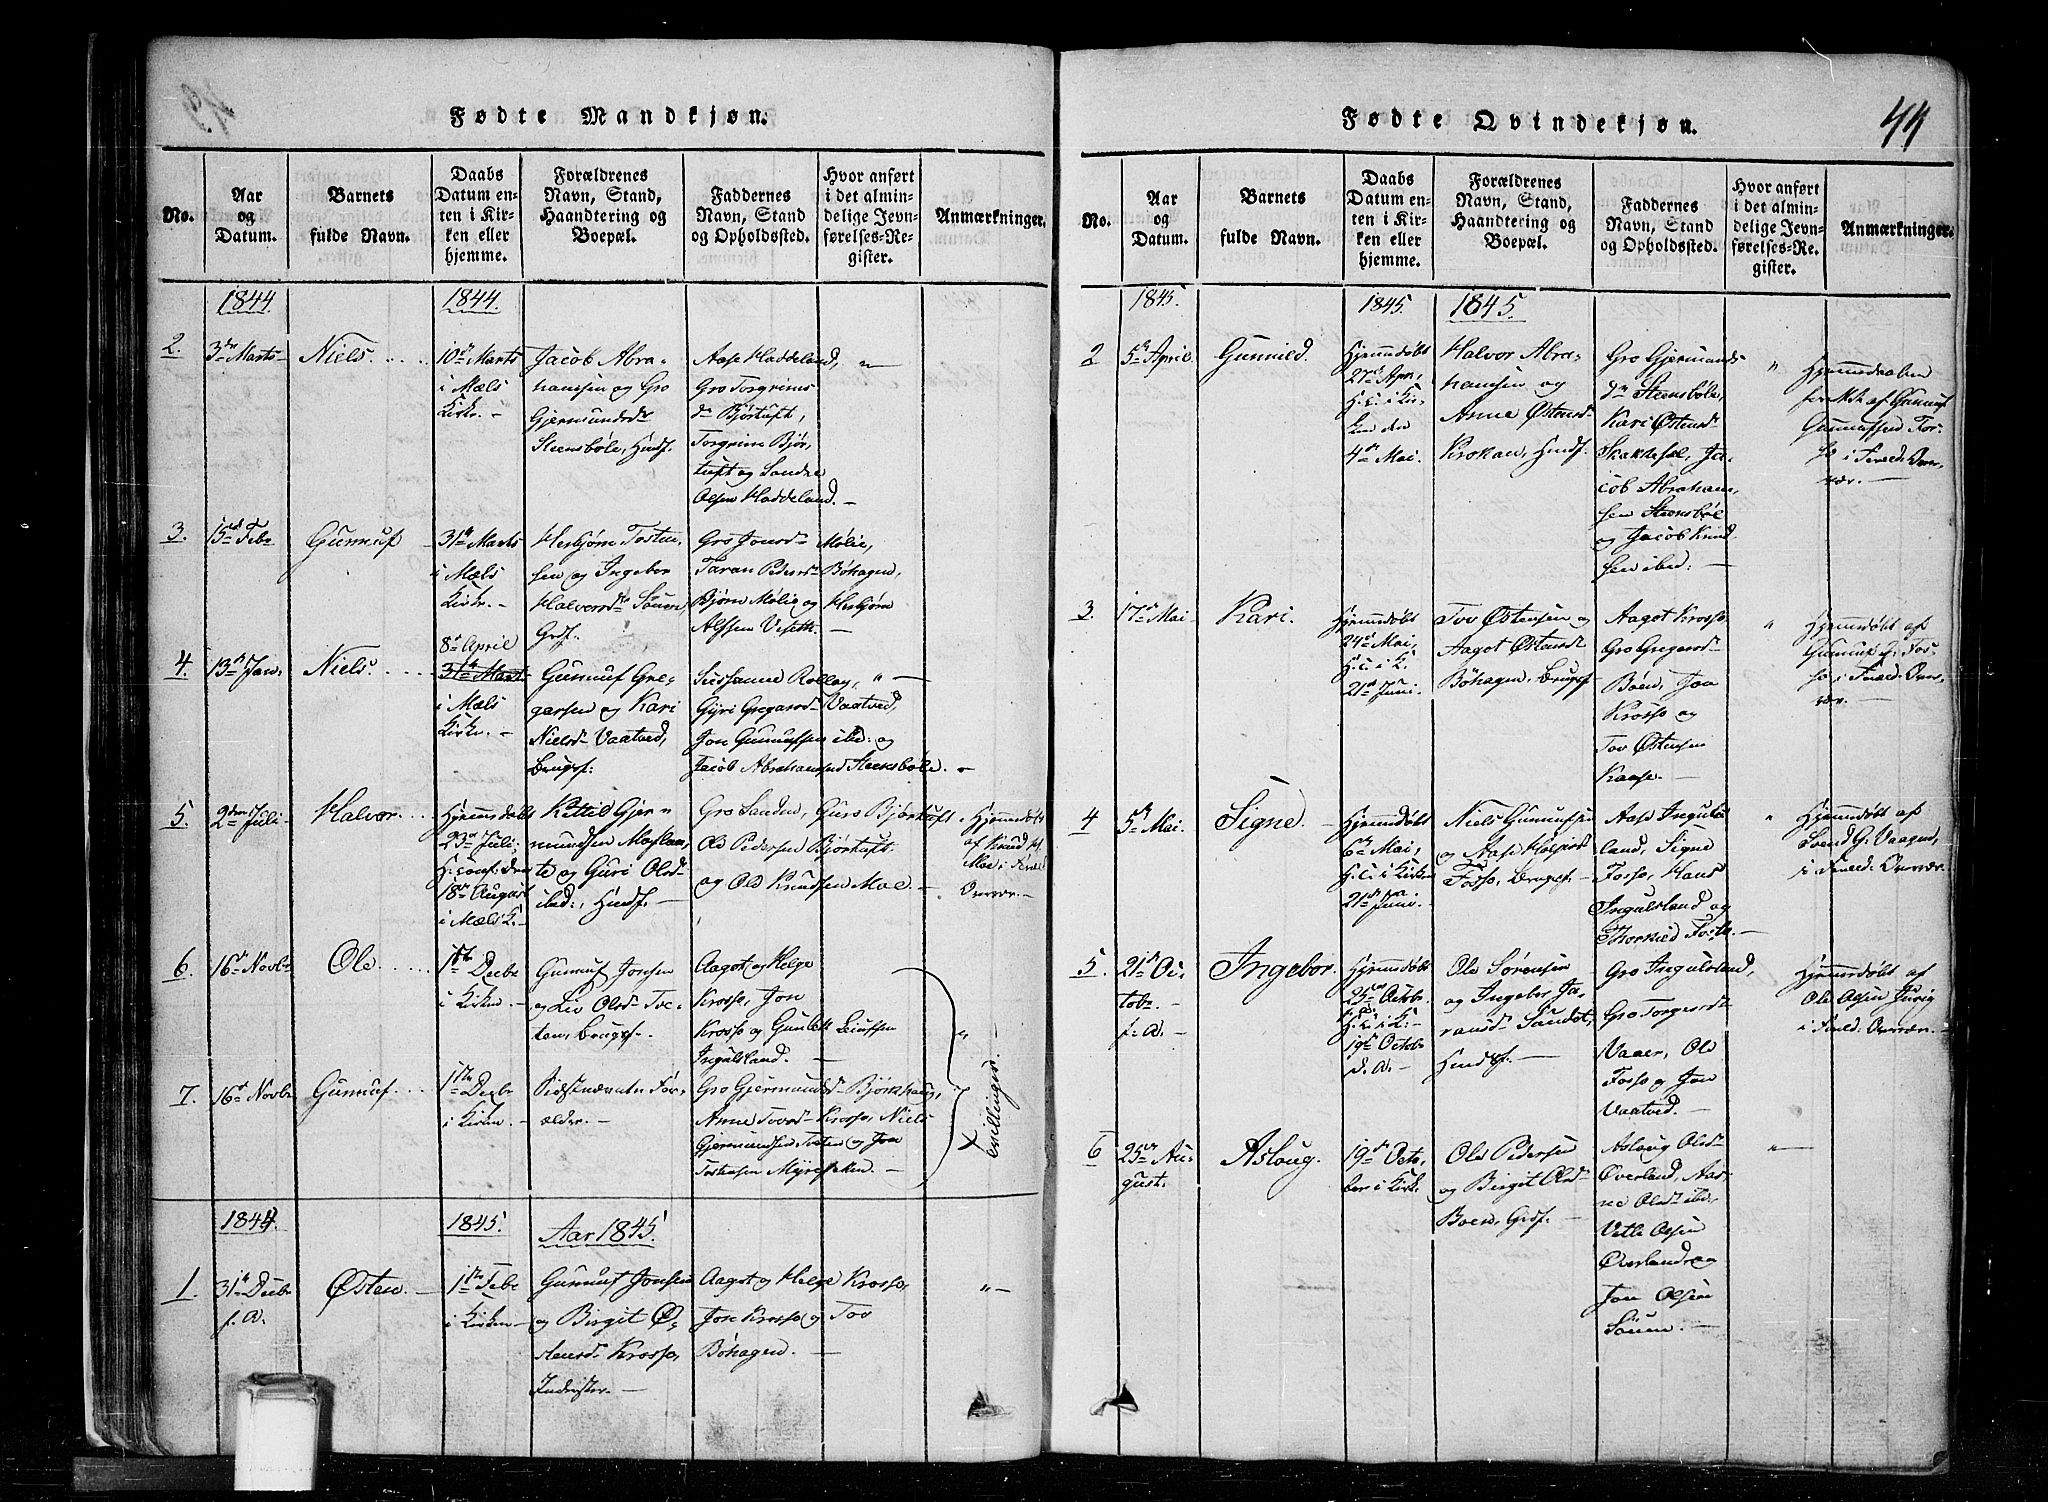 Fødte Mandkjøn.
No.
Aar
og
Datum.
Barnets
fulde Navn.
Daabs
Datum en-
ten i Kir-
ken eller
hjemme.
Forældrenes
Navn, Stand,
Haandtering og
Boepæl.
Faddernes
Navn, Stand
og Opholdssted.
Hvor anført
i det almin-
delige Jevn-
førelses-Re-
gister.
Anmærkninger.
1844
1844.
2.
3die Marts
Niels.
10de Marts
i Mæls
Kirke.
Jacob Abra-
hamsen og Gro
Gjermundsdr
Steensbøle, Huusf.
Aase Haddeland,
Gro Torgrims
dr Bjørtuft,
Torgrim Bjør-
tuft og Sondre
Olsen Haddeland.
3.
15de Febr
Gunnuf
31te Marts
i Mæls
Kirke.
Herbjørn Tosten-
sen og Ingebor
Halvorsdr Søuen,
Grdf.
Gro Jonsdr Mølie,
Taran Pedersdr Bøhagen,
Bjørn Mølie og Herbjørn
Alfsen Veseth.
4.
13de Jan.
Niels.
8de April
31te Mart
i Mæls
Kirke.
Gunnuf Gre-
garsen og Kari
Nielsdr Vaatved,
Brugsf:
Sussanne Rollag,
Gyri Gregarsdr Vaatved,
Jon Gunnufsen ibd: og
Jacob Abrahamsen Steensbøle.
5.
2den Juli
Halvor.
Hjemmedøbt
23de Juli,
H: conf: den
18de August
i Mæls K.
Kittil Gjer-
mundsen Moflaa-
te og Guri Olsdr
ibd:, Huusf.
Gro Sanden, Guro Bjørtuft
Ole Pedersen Bjørtuft
og Ole Knudsen Moe.
Hjemmedøbt
af Knud H.
Moe i Fired:
Overvær.
6.
16de Novbr
Ole
1ste Decbr
i Kirken
Gunnuf Jonsen
og Liv Olsdr Tve-
ten, Brugsf.
Aagot og Helge
Krosso, Jon
Krosso og Gunlek Leiufsen
Ingulsland.
7.
16de Novbr
Gunnuf.
1ste Decbr
i Kirken
Sidstnævnte For-
ældre.
Gro Gjermundsdr Bjørkhaug,
Anne Tovsdr Krosso, Niels
Gjermundsen Tveten og Jon
Tostensen Myrebakken.
Tvillinger.
1844.
1845.
Aar 1845.
1.
31te Decbr
f. A.
Østen.
1ste Febr
i Kirken
Gunnuf Jonsen
og Birgit Ø-
stensdr Krosso,
Inderster.
Aagot og Helge Krosso,
Jon Krosso og Tov
Bøhagen.
Fødte Qvindekjøn.
44
No.
Aar
og
Datum.
Barnets
fulde Navn.
Daabs
Datum en-
ten i Kir-
ken eller
hjemme.
Forældrenes
Navn, Stand,
Haandtering og
Boepæl.
Faddernes
Navn, Stand
og Opholdssted.
Hvor anført
i det almin-
delige Jevn-
førelses-Re-
gister.
Anmærkninger.
1845.
1845.
1845.
2
5te April.
Gunnild.
Hjemmedøbt
27de Apr,
H. C. i Kir-
ken den
4de Mai.
Halvor Abra-
hamsen og
Anne Østensdr
Krokan, Huusf.
Gro Gjermunds
dr Steensbøle,
Kari Østensdr
Skakdesæl, Ja-
cob Abraham-
sen Steensbøl
og Jacob Knud-
sen ibd:
Hjemmedaaben
af Gunnuf
Gunnufsen Fos-
so i Fired: Over-
vær.
3.
17de Mai
Kari.
Hjemmedøbt
24de Mai,
H. C. i K.
21de Juni
Tov Østensen og
Aagot Østensdr
Bøhagen, Brugsf
Aagot Krosso
Gro Gregarsdr
Boen, Jon
Krosso og
Tov Østensen
Kaase.
Hjemmedøbt af
Gunnuf G. Fos-
so, i Fired: Over-
vær.
4
5te Mai.
Signe
Hjemmedøbt
6te Mai,
H. C. i Kirken
21de Juni.
Niels Gunnufsen
og Aase
Fosso, Brugsf.
Aase Inguls-
land, Signe
Fosso, Hans
Ingulsland og
Thorkild Fosso.
Hjemmedøbt af
Svend G. Vaagen,
i Fired: Overvær.
5.
21de Oc-
tobr
f. A.
Ingebor.
Hjemmedøbt
25de Octobr
H. C. i K.
19de Octobr
d. A.
Ole Sørensen
og Ingebor Ja-
ransdr Sandot,
Huusf.
Gro Ingulsland,
Gro Torgersdr
Vaaer, Ole
Fosso og Jon
Vaatved.
Hjemmedøbt af
Ole Olsen Jurig
i Fired: Overvær.
6
25de Au-
gust.
Asloug.
19de Octo-
ber i Kirk.
Ole Pedersen
og Birgit Olsdr
Boen, Grdf.
Asloug Olsdr
Øverland, Aas-
ne Olsdr ibd.,
Vetle Olsen
Øverland og
Jon Olsen
Søuen.